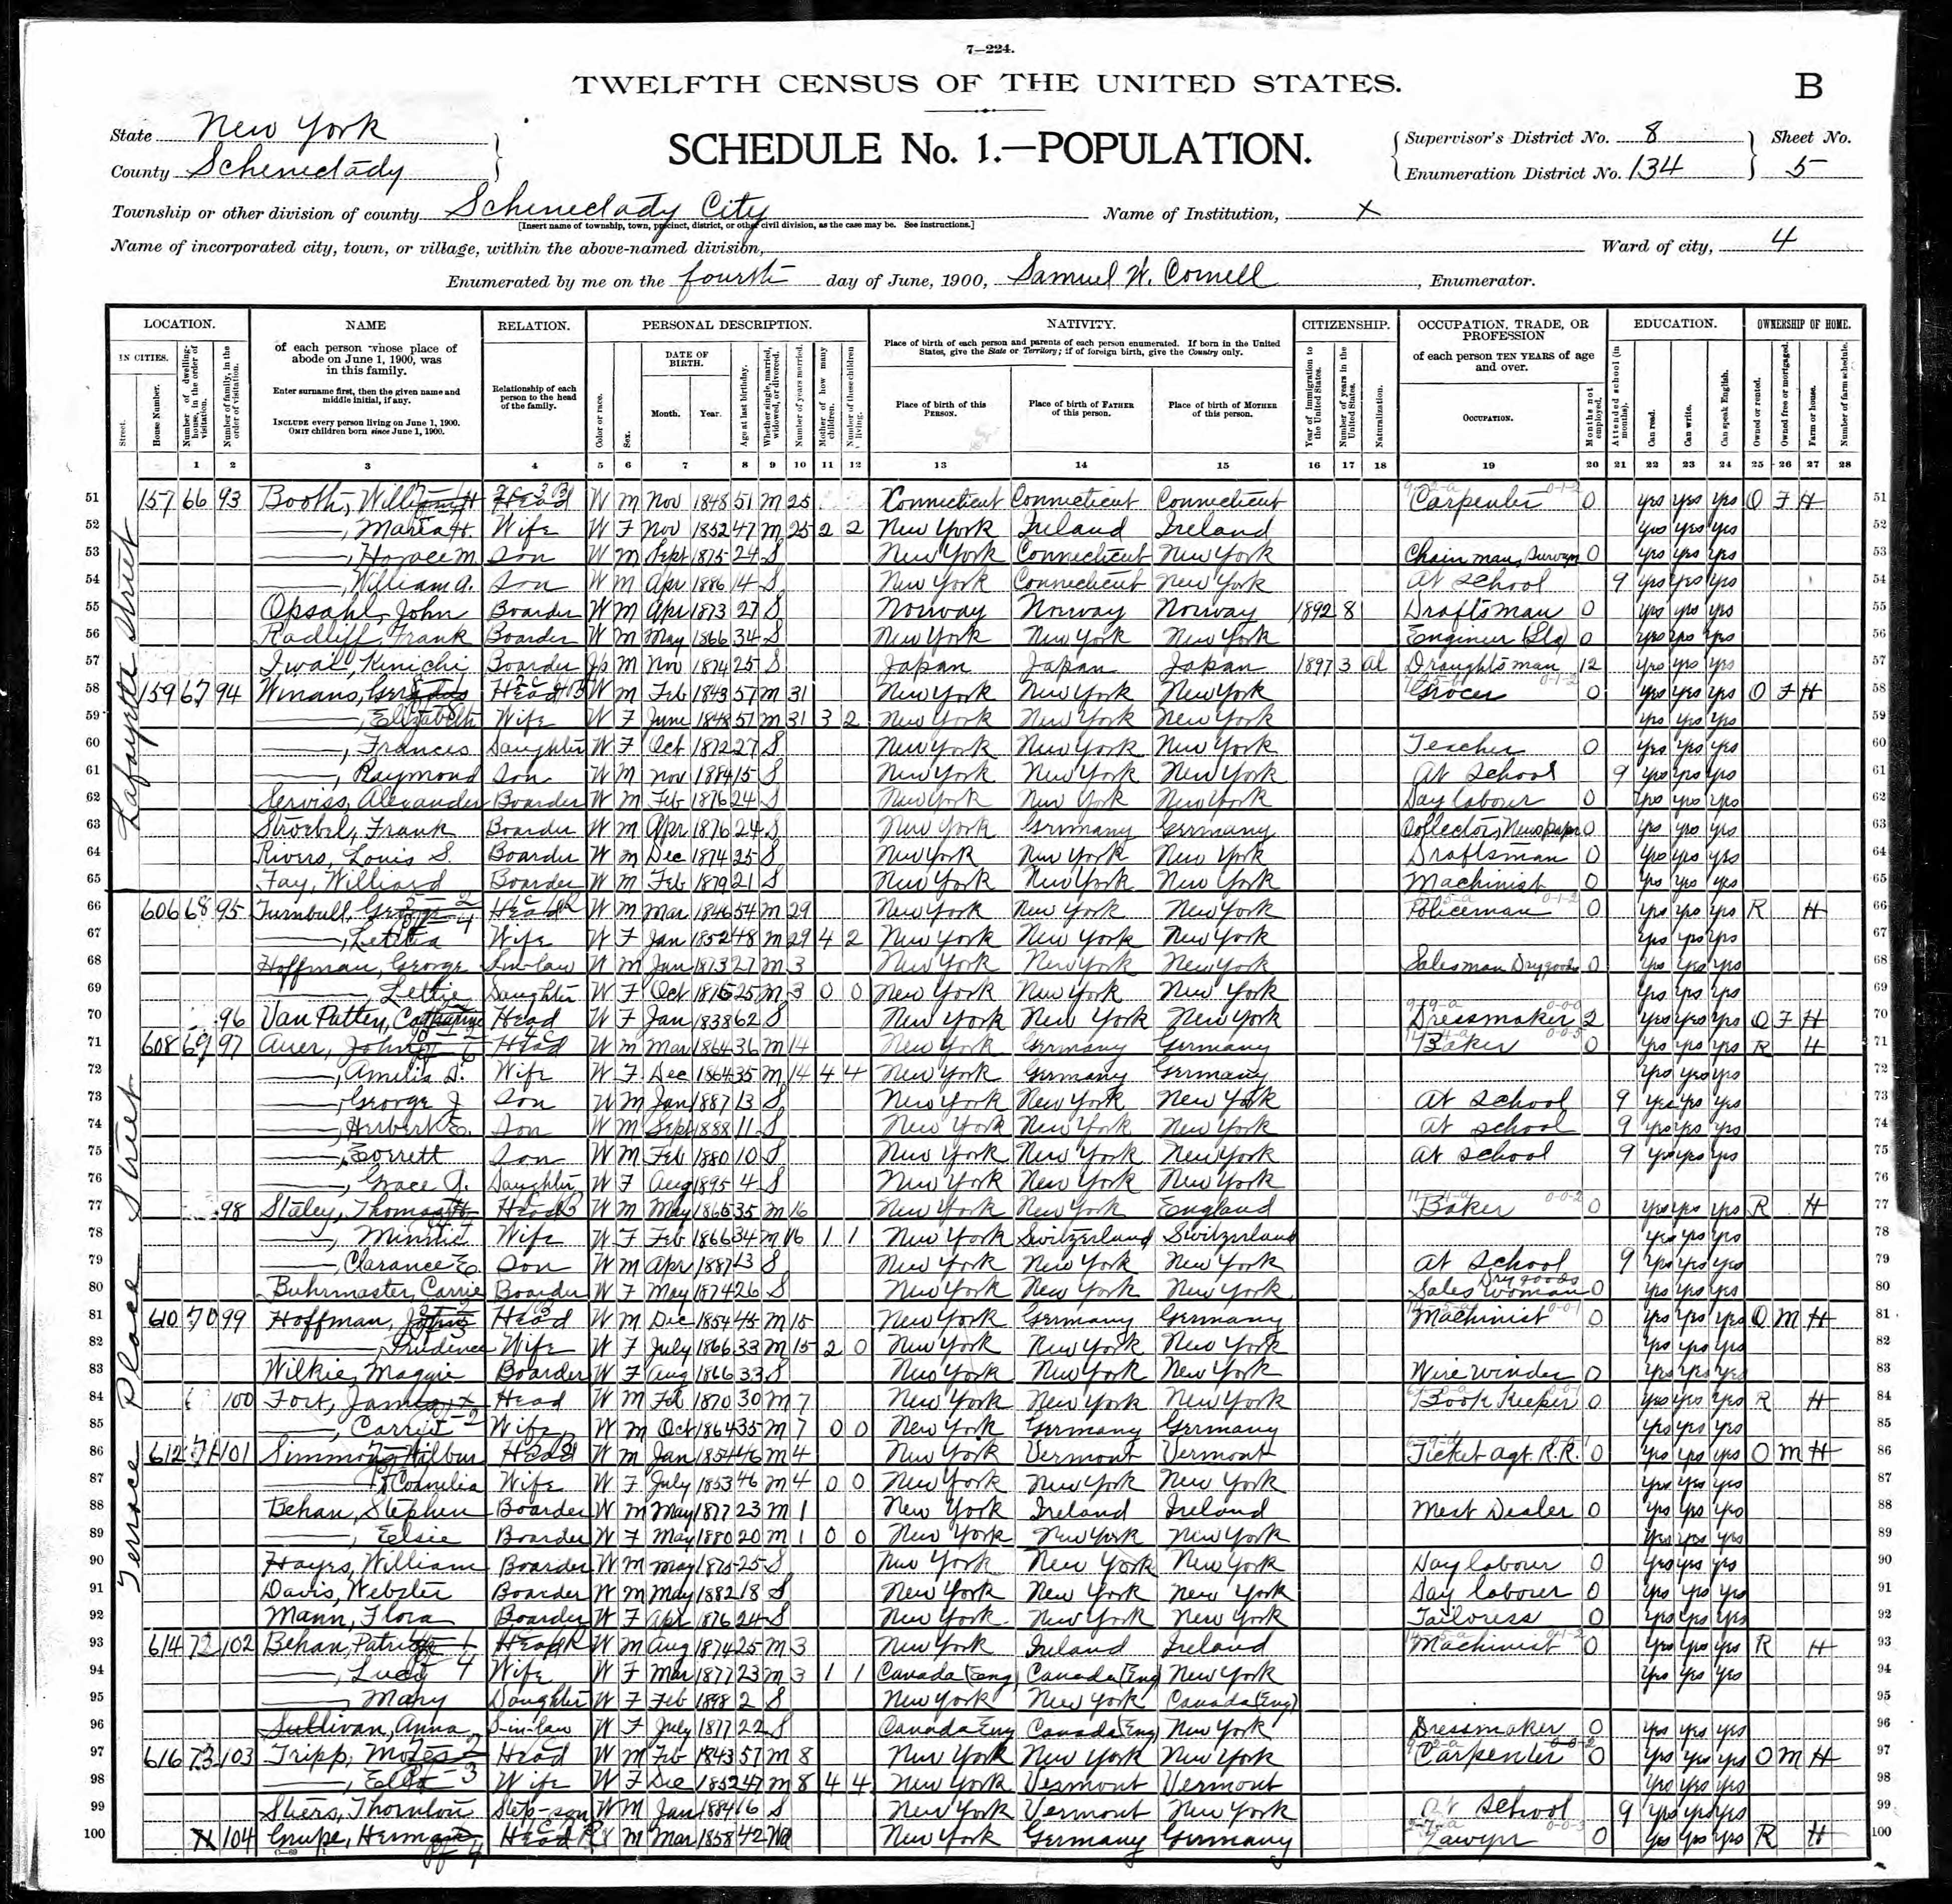 7—224.
TWELFTH CENSUS OF THE UNITED STATES.
B
State New York
County Schenectady
SCHEDULE No. 1.—POPULATION.
Supervisor's District No. 8
Enumeration District No. 134
Sheet No.
5
Township or other division of county Schenectady City
[Insert name of township, town, precinct, district, or other civil division, as the case may be. See instructions.]
Name of Institution, X
Name of incorporated city, town, or village, within the above-named division,
Ward of city, 4
Enumerated by me on the fourth day of June, 1900, Samuel W. Cornell, Enumerator.
LOCATION. NAME RELATION. PERSONAL DESCRIPTION. NATIVITY. CITIZENSHIP. OCCUPATION, TRADE, OR PROFESSION EDUCATION. OWNERSHIP OF HOME.
IN CITIES.
Street.
House Number.
Number of dwelling-house, in the order of visitation.
Number of family, in the order of visitation.
of each person whose place of abode on June 1, 1900, was in this family.
Enter surname first, then the given name and middle initial, if any.
INCLUDE every person living on June 1, 1900.
OMIT children born since June 1, 1900.
Relationship of each person to the head of the family.
Color or race.
Sex.
DATE OF BIRTH.
Month. Year.
Age at last birthday.
Whether single, married, widowed, or divorced.
Number of years married.
Mother of how many children.
Number of these children living.
Place of birth of each person and parents of each person enumerated. If born in the United States, give the State or Territory; if of foreign birth, give the Country only.
Place of birth of this PERSON.
Place of birth of FATHER of this person.
Place of birth of MOTHER of this person.
Year of immigration to the United States.
Number of years in the United States.
Naturalization.
of each person TEN YEARS of age and over.
OCCUPATION.
Months not employed.
Attended school (in months).
Can read.
Can write.
Can speak English.
Owned or rented.
Owned free or mortgaged.
Farm or house.
Number of farm schedule.
1 2 3 4 5 6 7 8 9 10 11 12 13 14 15 16 17 18 19 20 21 22 23 24 25 26 27 28
Lafayette Street
51 157 66 93 Booth, William H Head W M Nov 1848 51 M 25 Connecticut Connecticut Connecticut Carpenter 0 yes yes yes O F H 51
52 , Maria H. Wife W F Nov 1852 47 M 25 2 2 New York Ireland Ireland yes yes yes 52
53 , Horace M. Son W M Sept 1875 24 S New York Connecticut New York Chain man, Surveyn 0 yes yes yes 53
54 , William A. Son W M Apr 1886 14 S New York Connecticut New York At School 9 yes yes yes 54
55 Opsahl, John Boarder W M Apr 1873 27 S Norway Norway Norway 1892 8 Draftsman 0 yes yes yes 55
56 Radliff, Frank Boarder W M May 1866 34 S New York New York New York Engineer (Sta) 0 yes yes yes 56
57 Iwai, Kinichi Boarder Jp M Nov 1874 25 S Japan Japan Japan 1897 3 Al Draughtsman 12 yes yes yes 57
58 159 67 94 Winans, Head W M Feb 1843 57 M 31 New York New York New York Grocer 0 yes yes yes O F H 58
59 , Elizabeth Wife W F June 1848 51 M 31 3 2 New York New York New York yes yes yes 59
60 , Frances Daughter W F Oct 1872 27 S New York New York New York Teacher 0 yes yes yes 60
61 , Raymond Son W M Nov 1884 15 S New York New York New York At School 9 yes yes yes 61
62 Serviss, Alexander Boarder W M Feb 1876 24 S New York New York New York Day labour 0 yes yes yes 62
63 Stroebel, Frank Boarder W M Apr 1876 24 S New York Germany Germany Collector, Newspaper 0 yes yes yes 63
64 Rivers, Louis S. Boarder W M Dec 1874 25 S New York New York New York Draftsman 0 yes yes yes 64
65 Fay, Williard Boarder W M Feb 1879 21 S New York New York New York Machinist 0 yes yes yes 65
Terrace Place Street
66 606 68 95 Turnbull, George Head W M Mar 1846 54 M 29 New York New York New York Policeman 0 yes yes yes R H 66
67 , Letitia Wife W F Jan 1852 48 M 29 4 2 New York New York New York yes yes yes 67
68 Hoffman, George S-in-law W M Jan 1873 27 M 3 New York New York New York Salesman Drygoods 0 yes yes yes 68
69 , Lettie Daughter W F Oct 25 M 3 0 0 New York New York New York yes yes yes 69
70 96 Van Patten, Catharine Head W F Jan 1838 62 S New York New York New York Dressmaker 2 yes yes yes O F H 70
71 608 69 97 Auer, John Head W M Mar 1864 36 M 14 New York Germany Germany Baker 0 yes yes yes R H 71
72 , Amelia D. Wife W F Dec 1864 35 M 14 4 4 New York Germany Germany yes yes yes 72
73 , George J Son W M Jan 1887 13 S New York New York New York At School 9 yes yes yes 73
74 , Herbert E. Son W M Sept 1888 11 S New York New York New York At School 9 yes yes yes 74
75 , Everett Son W M Feb 1880 10 S New York New York New York At School 9 yes yes yes 75
76 , Grace A. Daughter W F Aug 1895 4 S New York New York New York 76
77 98 Staley, Thomas H Head W M May 1865 35 M 16 New York New York England Baker 0 yes yes yes R H 77
78 , Minnie Wife W F Feb 1866 34 M 16 1 1 New York Switzerland Switzerland yes yes yes 78
79 , Clarance E. Son W M Apr 1887 13 S New York New York New York At School 9 yes yes yes 79
80 Buhrmaster, Carrie Boarder W F May 1874 26 S New York New York New York Sales woman Dry goods 0 yes yes yes 80
81 610 70 99 Hoffman, John Head W M Dec 1854 45 M 15 New York Germany Germany Machinist 0 yes yes yes O M H 81
82 , Prudence Wife W F July 1866 33 M 15 2 0 New York New York New York yes yes yes 82
83 Wilkie, Maggie Boarder W F Aug 1866 33 S New York New York New York Wire winder 0 yes yes yes 83
84 100 Fort, James Head W M Feb 1870 30 M 7 New York New York New York Book Keeper 0 yes yes yes R H 84
85 , Carrie Wife W M Oct 1864 35 M 7 0 0 New York Germany Germany yes yes yes 85
86 612 71 101 Simmons, Wilbur Head W M Jan 1854 46 M 4 New York Vermont Vermont Ticket Agt. R.R. 0 yes yes yes O M H 86
87 , Cornelia Wife W F July 1853 46 M 4 0 0 New York New York New York yes yes yes 87
88 Behan, Stephen Boarder W M May 1877 23 M 1 New York Ireland Ireland Meat Dealer 0 yes yes yes 88
89 , Eelsie Boarder W F May 1880 20 M 1 0 0 New York New York New York yes yes yes 89
90 Hayes, William Boarder W M May 1875 25 S New York New York New York Day labour 0 yes yes yes 90
91 Davis, Webster Boarder W M May 1882 18 S New York New York New York Day laborer 0 yes yes yes 91
92 Mann, Flora Boarder W F Apr 1876 24 S New York New York New York Tailoress 0 yes yes yes 92
93 614 72 102 Behan, Patrick Head W M Aug 1874 25 M 3 New York Ireland Ireland Machinist 0 yes yes yes R H 93
94 , Lucy Wife W F Mar 1877 23 M 3 1 1 Canada (Eng) Canada (Eng) New York yes yes yes 94
95 , Mary Daughter W F Feb 1898 2 S New York New York Canada (Eng) 95
96 Sullivan, Anna S-in-law W F July 1877 22 S Canada Eng Canada (Eng) New York Dressmaker 0 yes yes yes 96
97 616 73 103 Tripp, Moses Head W M Feb 1843 57 M 8 New York New York New York Carpenter 0 yes yes yes O M H 97
98 , Ella Wife W F Dec 1852 47 M 8 4 4 New York Vermont Vermont yes yes yes 98
99 Stiers, Thornton Step-son W M Jan 1884 16 S New York Vermont New York At School 9 yes yes yes 99
100 X 104 Grupe, Herman Head W M Mar 1858 42 Wd New York Germany Germany Lawyer 0 yes yes yes R H 100